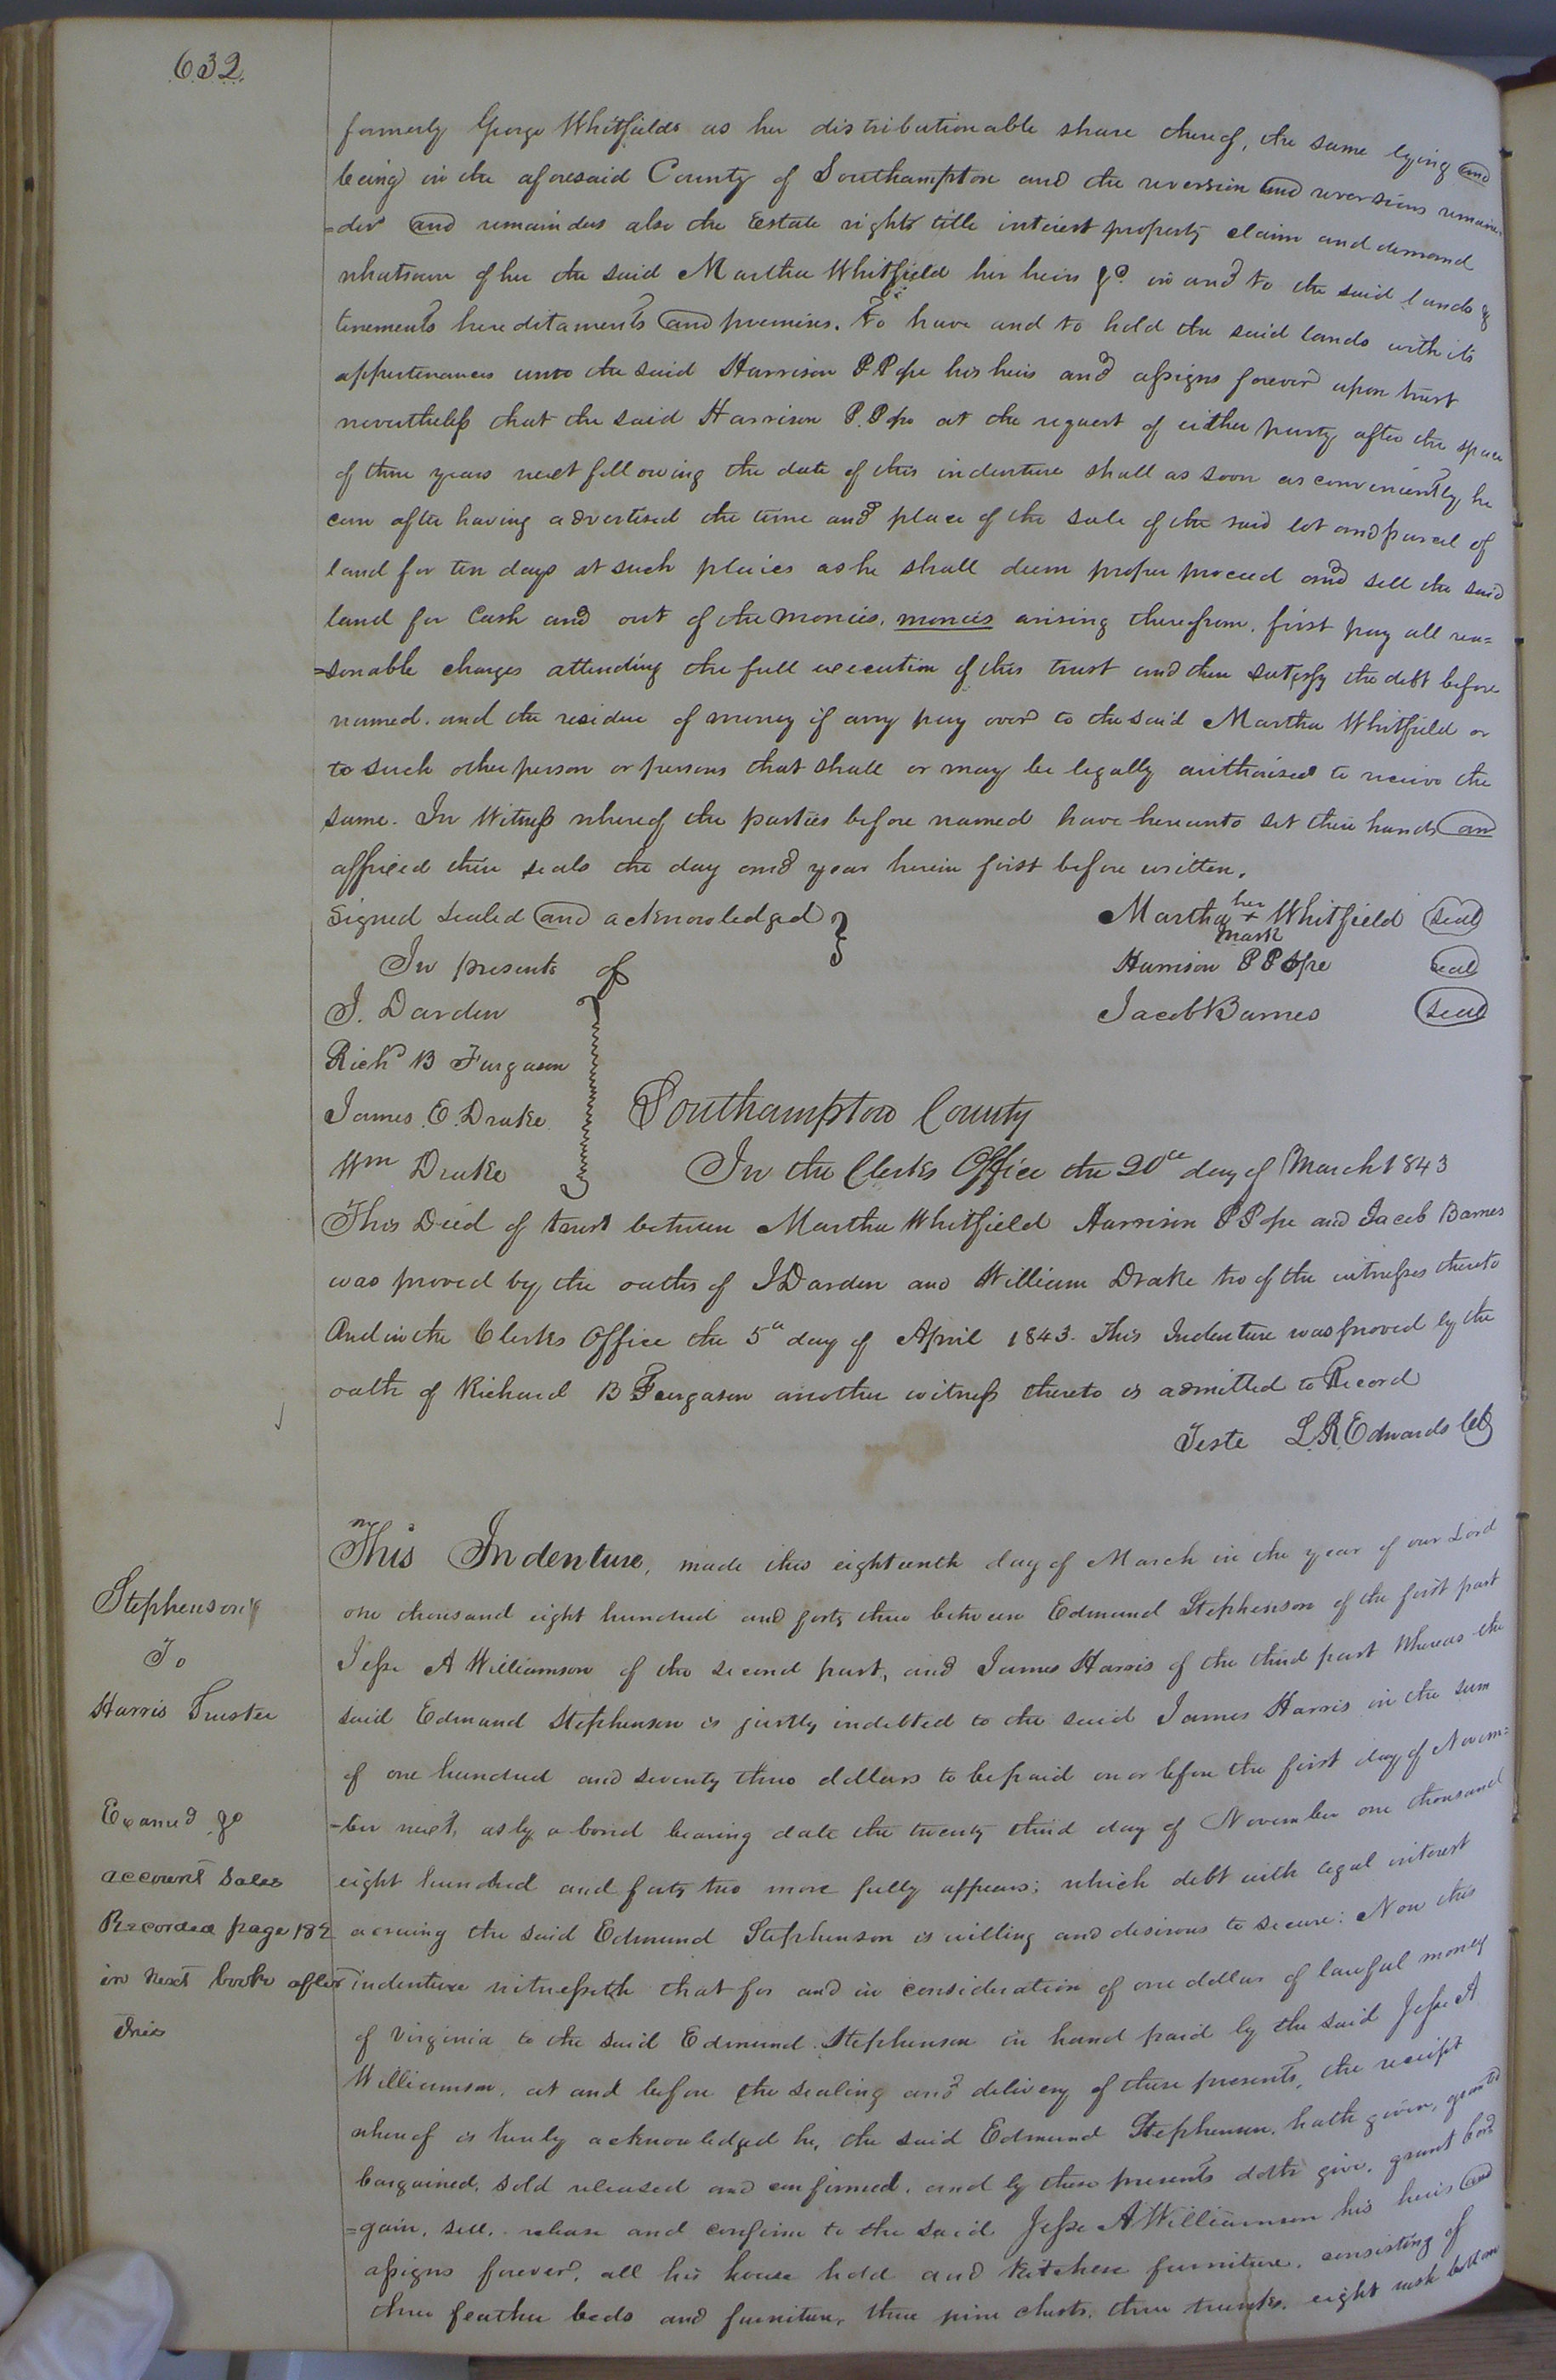 632.
formerly George Whitfields as her distributionable share thereof, the same lying and
being in the aforesaid County of Southampton and the reversion and reversions remain
=der and remainders also the Estate rights title interest property claim and demand
whatsoever of her the said Martha Whitfield her heirs &c. in and to the said lands &
tenements hereditaments and premises. To have and to hold the said lands with its
appurtenances unto the said Harrison P. Pope his heirs and assigns forever upon trust
nevertheless that the said Harrison P. Pope at the request of either party after the space
of three years next following the date of this indenture shall as soon as conveniently he
can after having advertised the time and place of the sale of the said lot and parcel of
land for ten days at such places as he shall deem proper proceed and sell the said
land for Cash and out of the monies, monies arising therefrom, first pay all rea=
=sonable charges attending the full execution of this trust and then satisfy the debt before
named. and the residue of money if any pay over to the said Martha Whitfield or
to such other person or persons that shall or may be legally authorised to receive the
same. In Witness whereof the parties before named have hereunto set their hands and
affixed their seals the day and year herein first before written.
Signed sealed and acknowledged
In presents of
Martha her + mark Whitfield seal
Harrison P Pope seal
Jacob Barnes seal
J. Darden
Richd B Furgason
James E. Drake
Wm Drake
Southampton County
In the Clerks Office the 20th day of March 1843
This Deed of trust between Martha Whitfield Harrison P Pope and Jacob Barnes
was proved by the oaths of J Darden and William Drake two of the witnesses thereto
And in the Clerks Office the 5th day of April 1843. This Indenture was proved by the
oath of Richard B Furgason another witness thereto is admitted to Record
Teste L. R. Edwards Clk
Stephenson
To
Harris Trustee
Examd &c
account sales
Recorded page 182
in next book after
this
This Indenture, made this eighteenth day of March in the year of our Lord
one thousand eight hundred and forty three between Edmund Stephenson of the first part
Jesse A Williamson of the second part, and James Harris of the third part Whereas the
said Edmund Stephenson is justly indebted to the said James Harris in the sum
of one hundred and seventy three dollars to be paid on or before the first day of Novem=
=ber next, as by a bond bearing date the twenty third day of November one thousand
eight hundred and forty two more fully appears; which debt with legal interest
acruing the said Edmund Stephenson is willing and desirous to secure: Now this
indenture witnesseth that for and in consideration of one dollar of lawful money
of Virginia to the said Edmund Stephenson in hand paid by the said Jesse A
Williamson, at and before the sealing and delivery of these presents, the receipt
whereof is hereby acknowledged he, the said Edmund Stephenson, hath given, granted
bargained, sold released and confirmed, and by these presents doth give, grant bar
=gain, sell, release and confirm to the said Jesse A Williamson his heirs and
assigns forever, all his house hold and kitchen furniture, consisting of
three feather beds and furniture, three pine chests, three trunks, eight rush bottom